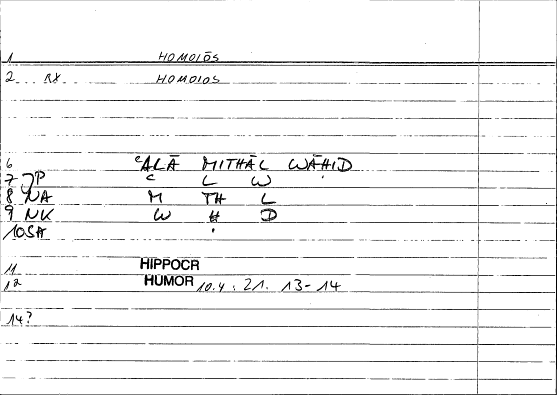 1 HOMOIŌS
2 RX HOMOIOS
6 ʿALĀ MITHĀL WĀḤID
7 JP ʿ L W
8 NA M TH L
9 NK W Ḥ D
10 SA
11 HIPPOCR
12 HUMOR 10.4 : 21. 13-14
14?